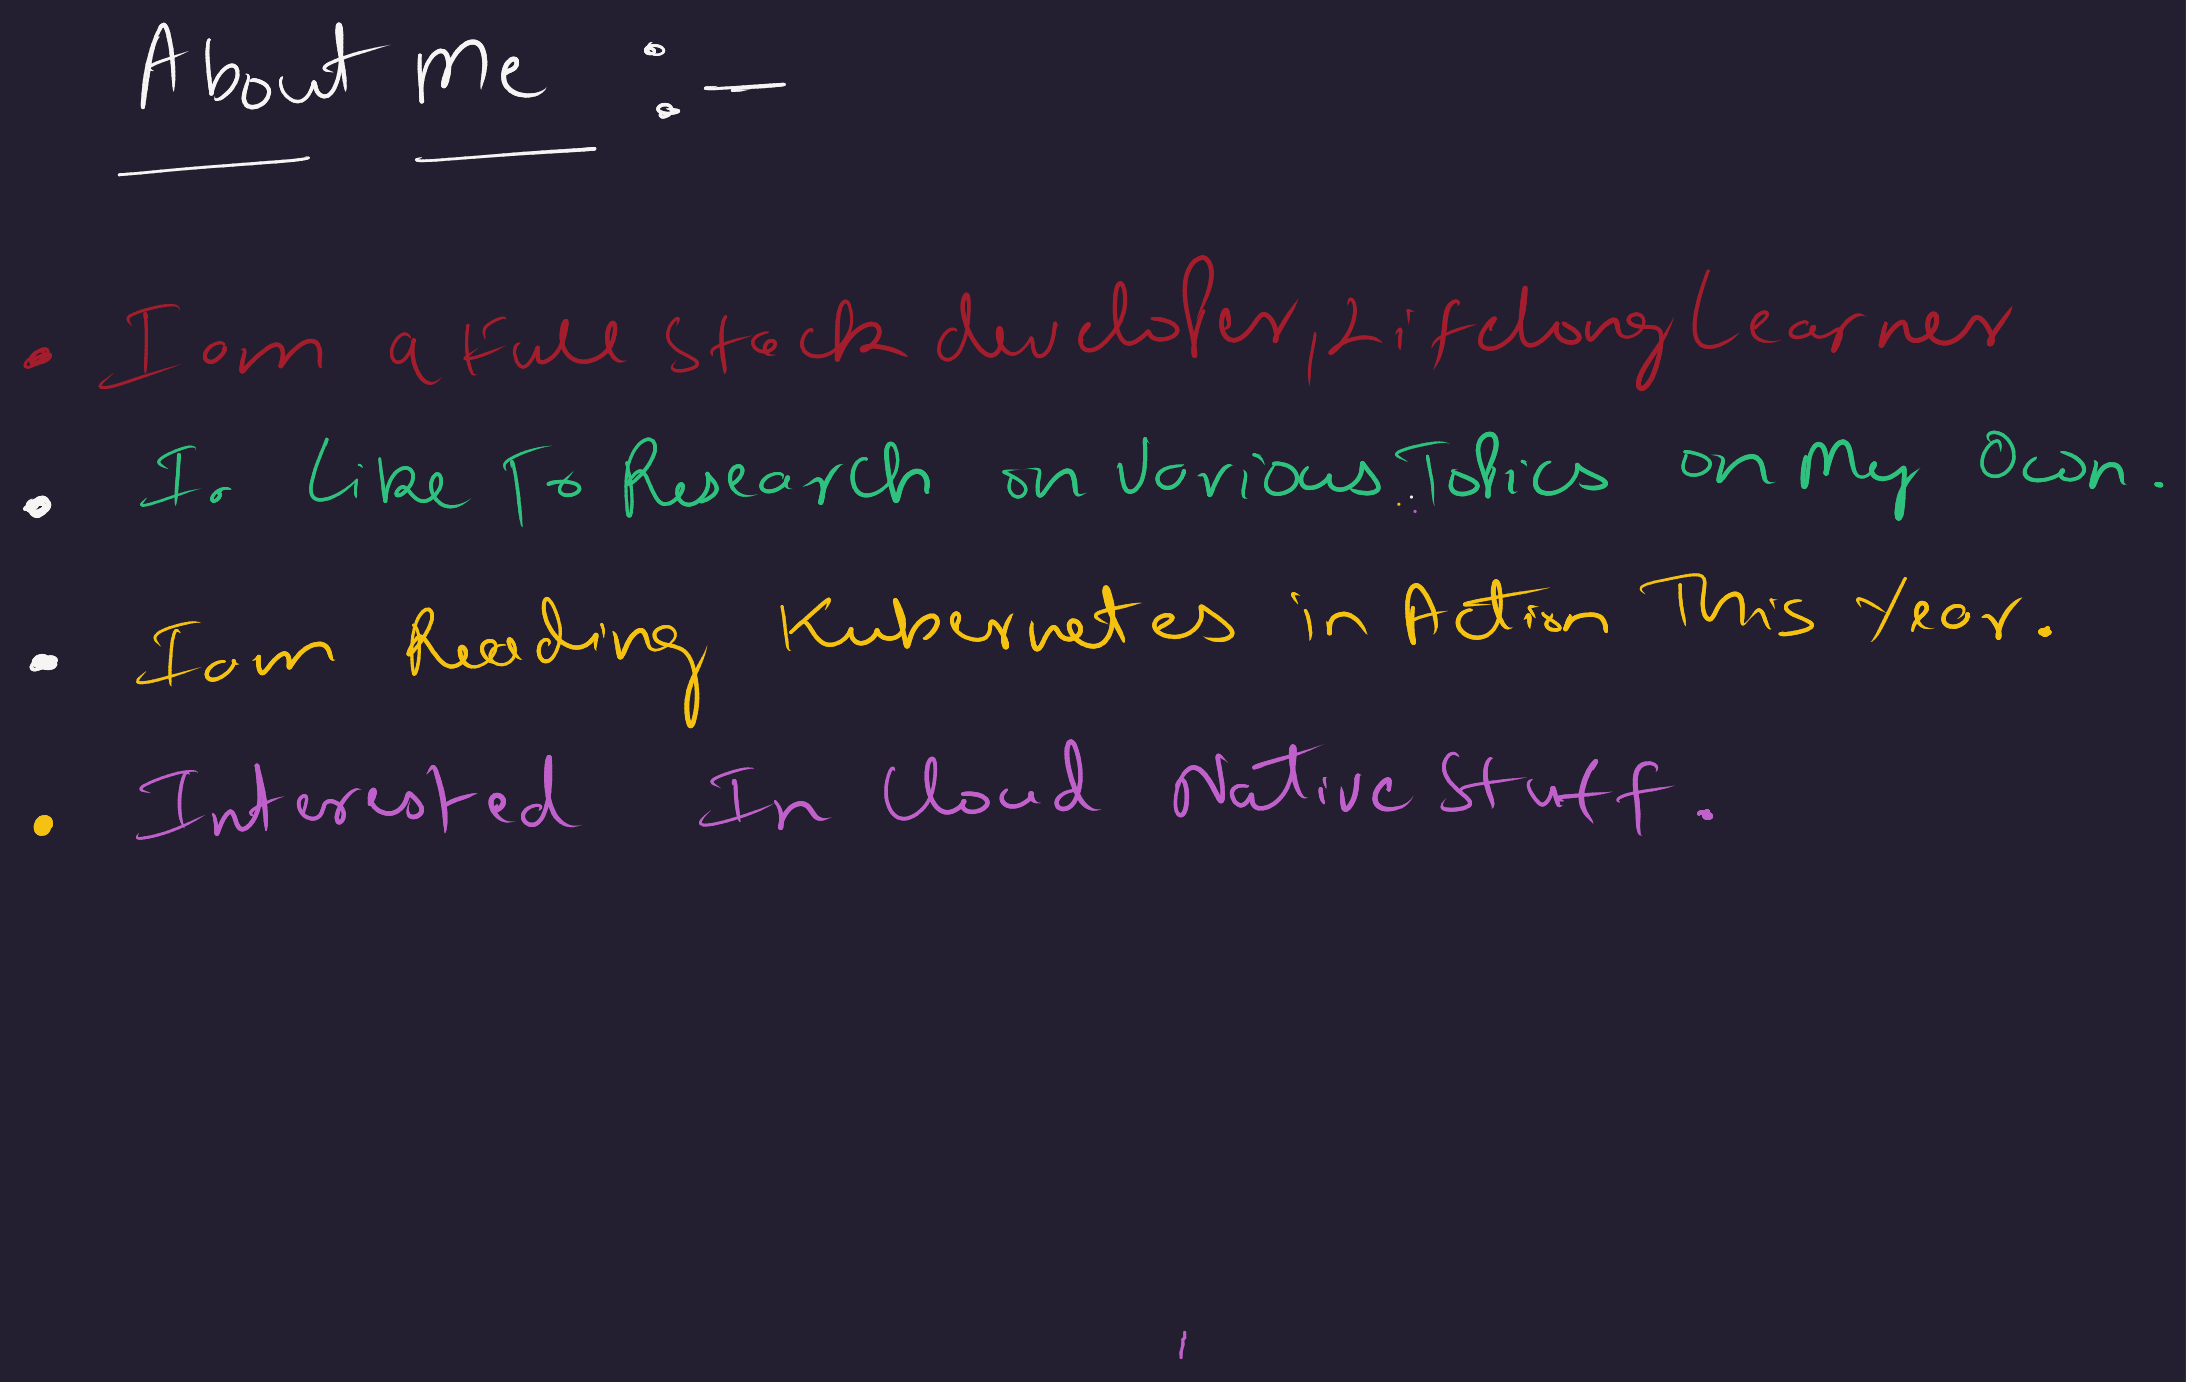 About Me :-
• I am a Full Stack developer, Lifelong Learner
• I. Like To Research on Various Topics on My Own.
• I am Reading Kubernetes in Action This Year.
• Interested In Cloud Native Stuff.